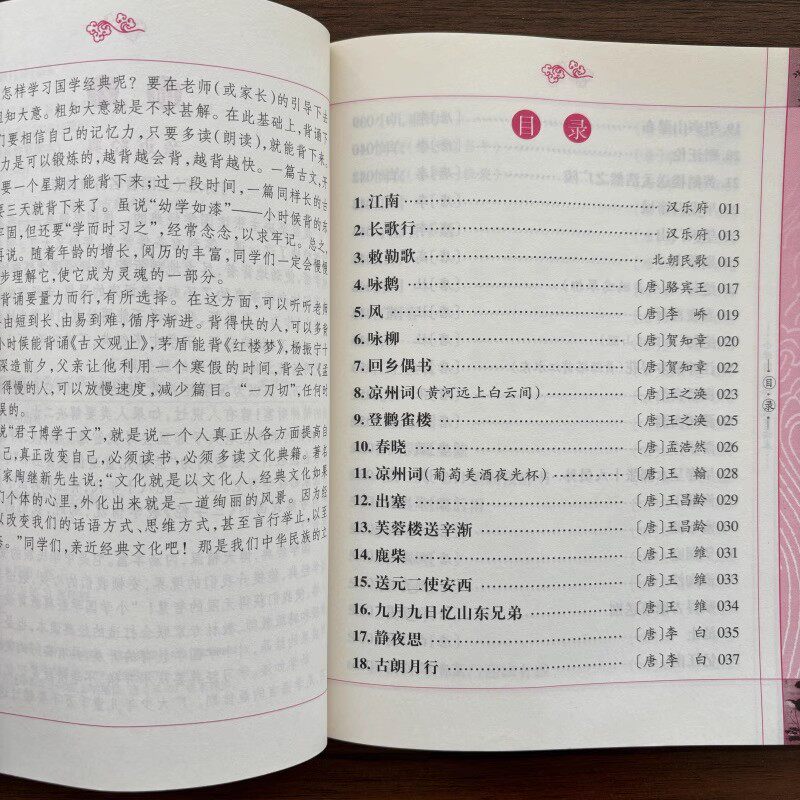 怎样学习国学经典呢？要在老师(或家长)的引导下去
粗知大意。粗知大意就是不求甚解。在此基础上，背诵下
们要相信自己的记忆力，只要多读(朗读)，就能背下来。
力是可以锻炼的，越背越会背，越背越快。一篇古文，开
要一个星期才能背下来；过一段时间，一篇同样长的古
要三天就背下来了。虽说“幼学如漆”——小时候背的东
牢固，但还要“学而时习之”，经常念念，以求牢记。总之，
再说。随着年龄的增长，阅历的丰富，同学们一定会慢慢
步理解它，使它成为灵魂的一部分。
背诵要量力而行，有所选择。在这方面，可以听听老师
由短到长、由易到难，循序渐进。背得快的人，可以多背
小时候能背诵《古文观止》，茅盾能背《红楼梦》，杨振宁十
深造前夕，父亲让他利用一个寒假的时间，背会了《孟
得慢的人，可以放慢速度，减少篇目。“一刀切”，任何时
误的。
说“君子博学于文”，就是说一个人真正从各方面提高自
己，真正改变自己，必须读书，必须多读文化典籍。著名
家陶继新先生说：“文化就是以文化人，经典文化如果
们个体的心里，外化出来就是一道绚丽的风景。因为经
以改变我们的话语方式、思维方式，甚至言行举止，以至
。”同学们，亲近经典文化吧！那是我们中华民族的立
目 录
1. 江南 汉乐府 011
2. 长歌行 汉乐府 013
3. 敕勒歌 北朝民歌 015
4. 咏鹅 〔唐〕骆宾王 017
5. 风 〔唐〕李 峤 019
6. 咏柳 〔唐〕贺知章 020
7. 回乡偶书 〔唐〕贺知章 022
8. 凉州词(黄河远上白云间) 〔唐〕王之涣 023
9. 登鹳雀楼 〔唐〕王之涣 025
10. 春晓 〔唐〕孟浩然 026
11. 凉州词(葡萄美酒夜光杯) 〔唐〕王 翰 028
12. 出塞 〔唐〕王昌龄 029
13. 芙蓉楼送辛渐 〔唐〕王昌龄 030
14. 鹿柴 〔唐〕王 维 031
15. 送元二使安西 〔唐〕王 维 033
16. 九月九日忆山东兄弟 〔唐〕王 维 034
17. 静夜思 〔唐〕李 白 035
18. 古朗月行 〔唐〕李 白 037
目·录